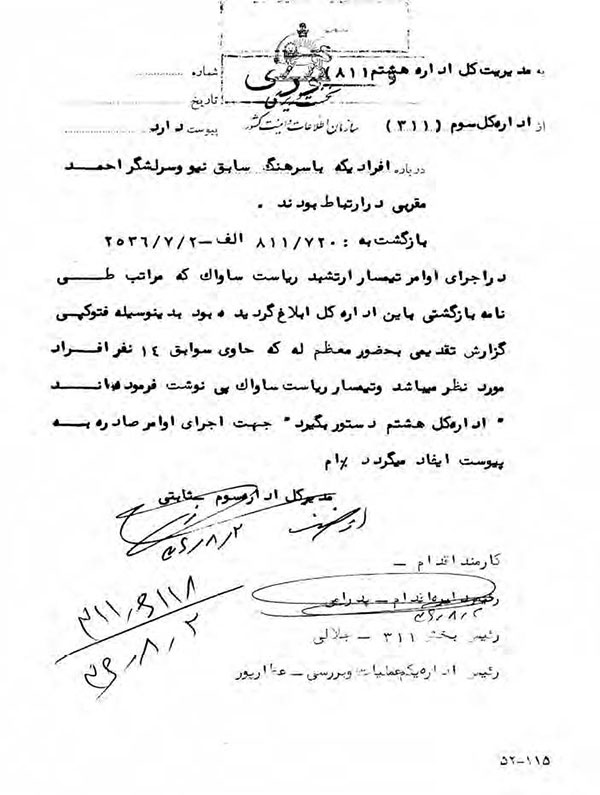 به مدیریت کل اداره هشتم (۸۱۱)
شماره
تاریخ
نخست وزیری
سازمان اطلاعات و امنیت کشور
از اداره کل سوم (۳۱۱)
پیوست دارد
درباره افرادیکه باسرهنگ سابق نیو وسرلشگر احمد
مقربی درارتباط بودند .
بازگشت به : ۸۱۱/۷۲۰ الف -۲۵۳۶/۷/۲
دراجرای اوامر تیمسار ارتشبد ریاست ساواک که مراتب طی
نامه بازگشتی باین اداره کل ابلاغ گردیده بود بدینوسیله فتوکپی
گزارش تقدیمی بحضور معظم له که حاوی سوابق ۱۴ نفر افراد
مورد نظر میباشد وتیمسار ریاست ساواک پی نوشت فرموده اند
" اداره کل هشتم دستور بگیرد" جهت اجرای اوامر صادره به
پیوست ایفاد میگردد
مدیرکل اداره سوم - ثابتی
۳۶/۸/۲
کارمند اقدام -
۳۶/۸/۲
رئیس بخش ۳۱۱ - جلالی
رئیس اداره یکم عملیات و بررسی - عطارپور
۳۶/۸/۲
۵۲-۱۱۵